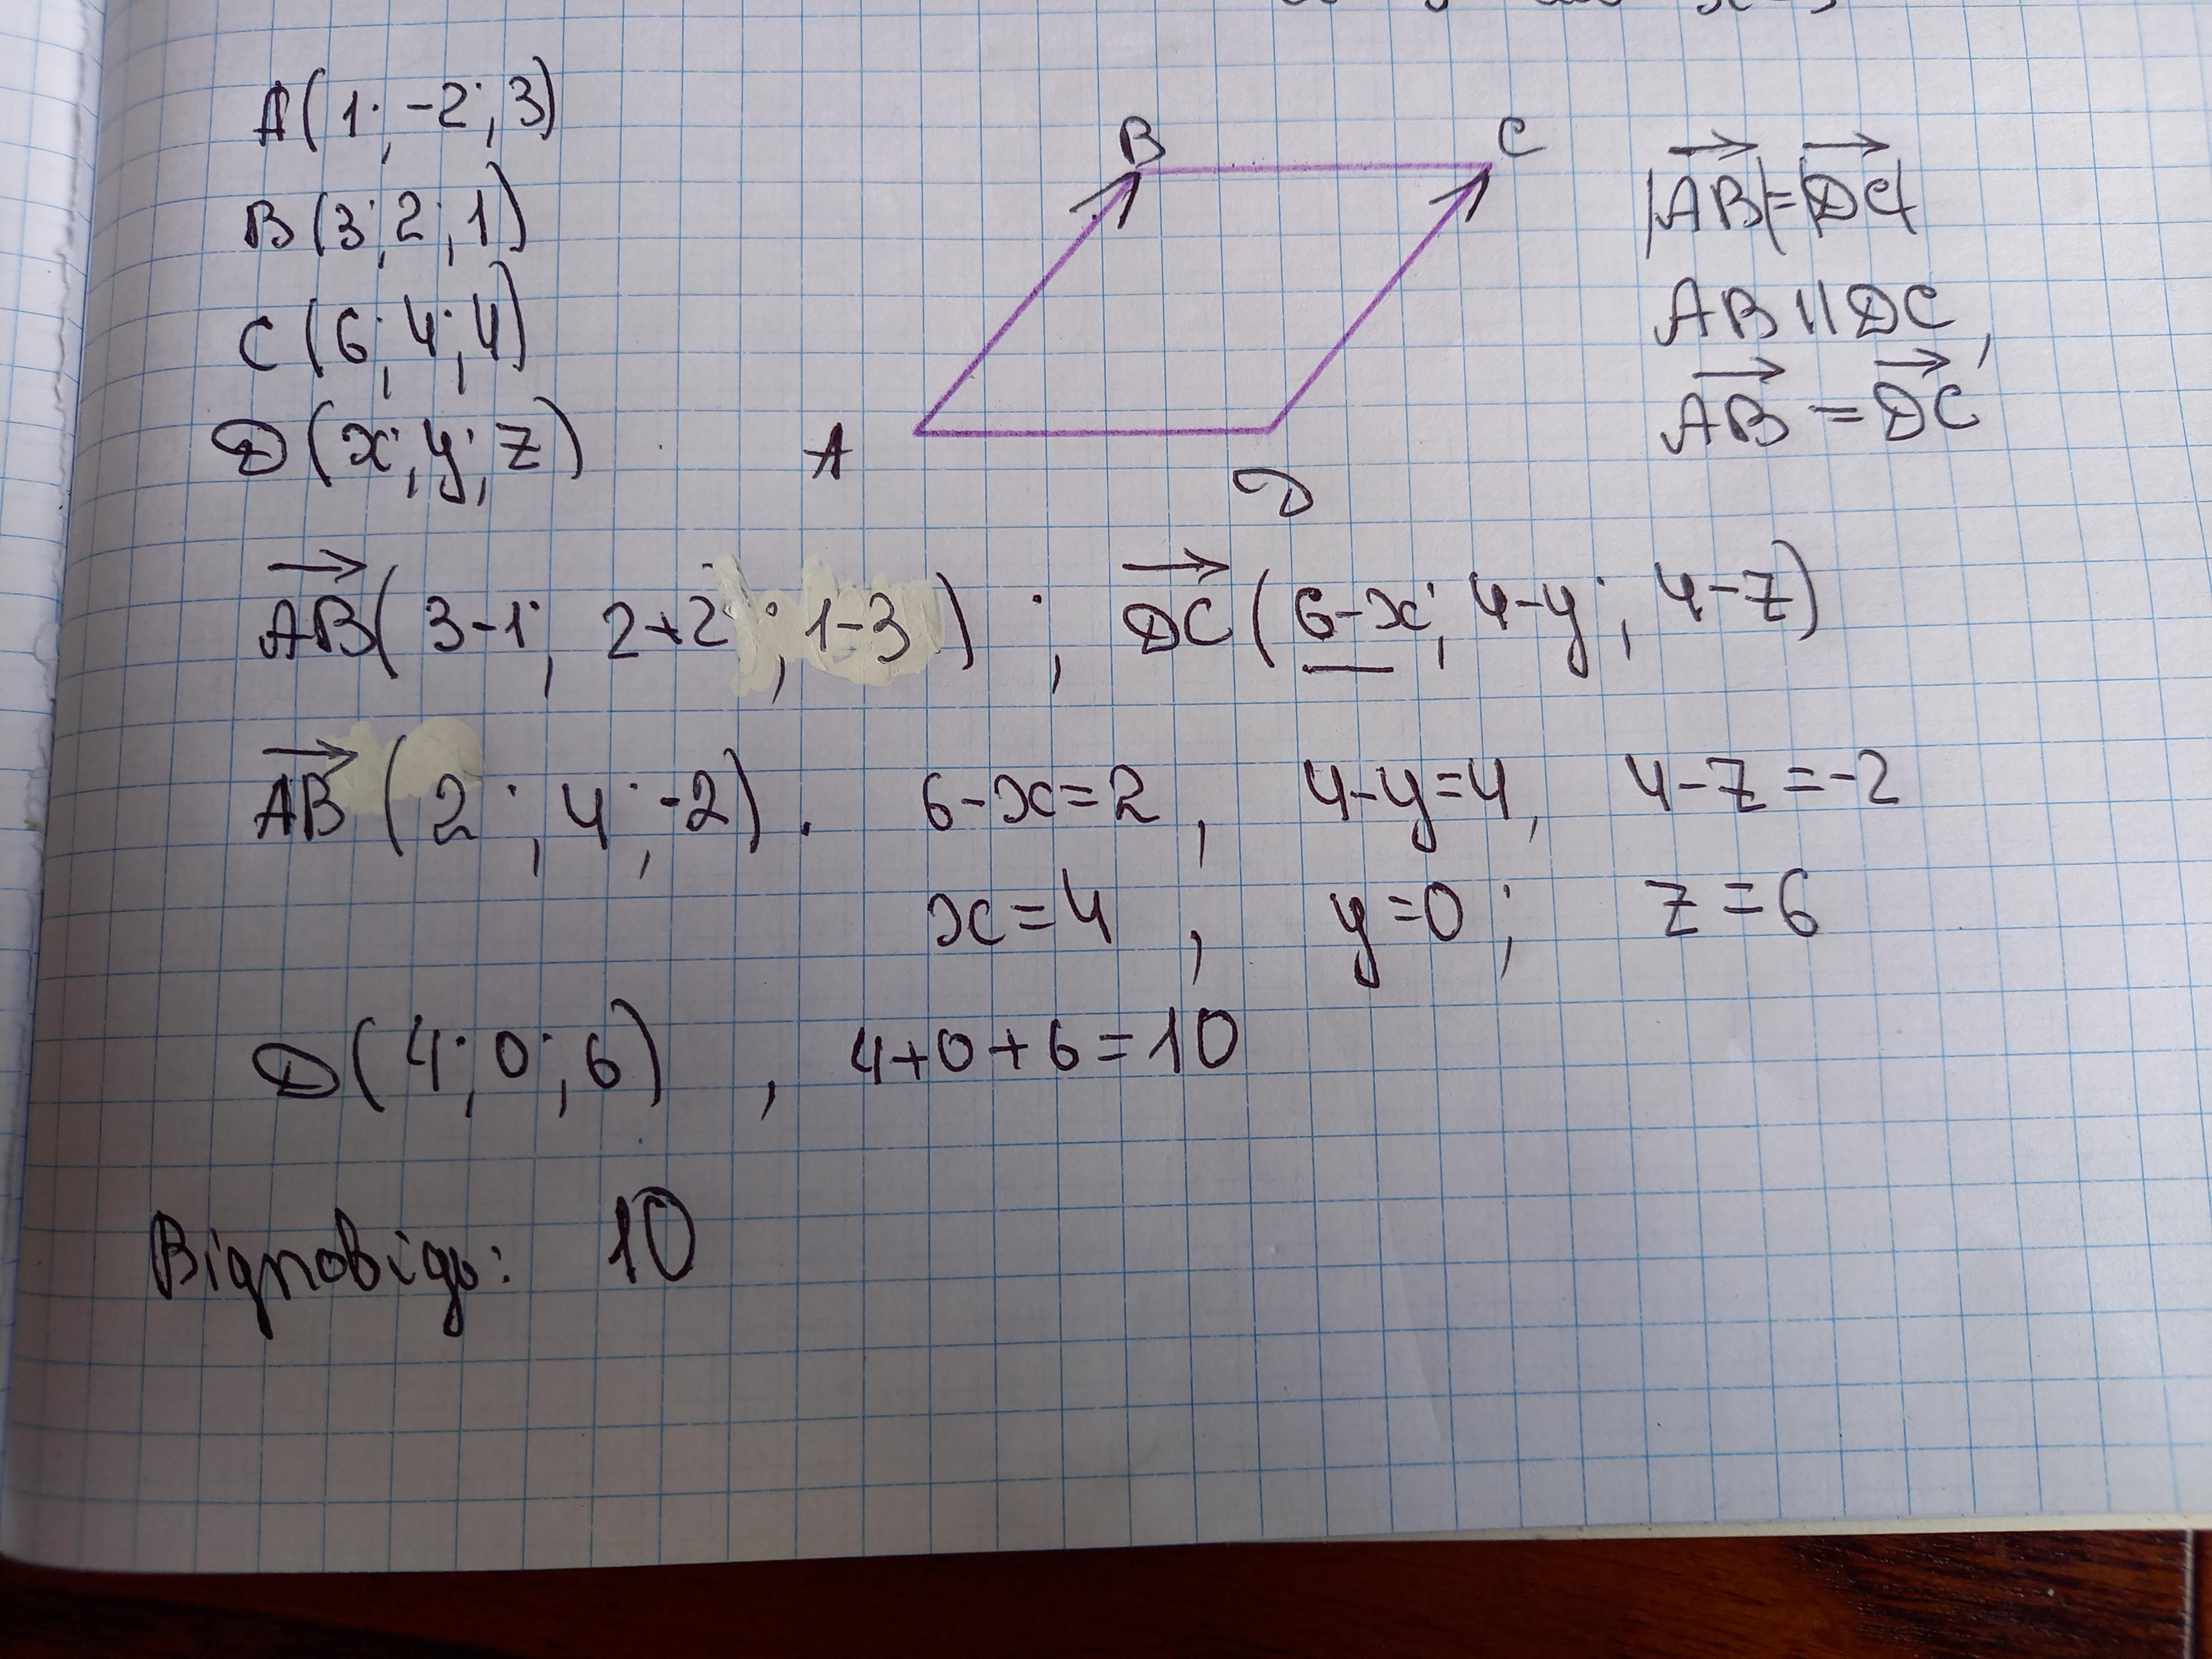 A(1; -2; 3)
B(3; 2; 1)
C(6; 4; 4)
D(x; y; z)
B
C
A
D
|AB|=|DC|
AB || DC,
AB = DC
AB(3-1; 2+2; 1-3) ; DC(6-x; 4-y; 4-z)
AB (2; 4; -2). 6-x=2, 4-y=4, 4-z=-2
x=4, y=0; z=6
D(4; 0; 6), 4+0+6=10
Відповідь: 10